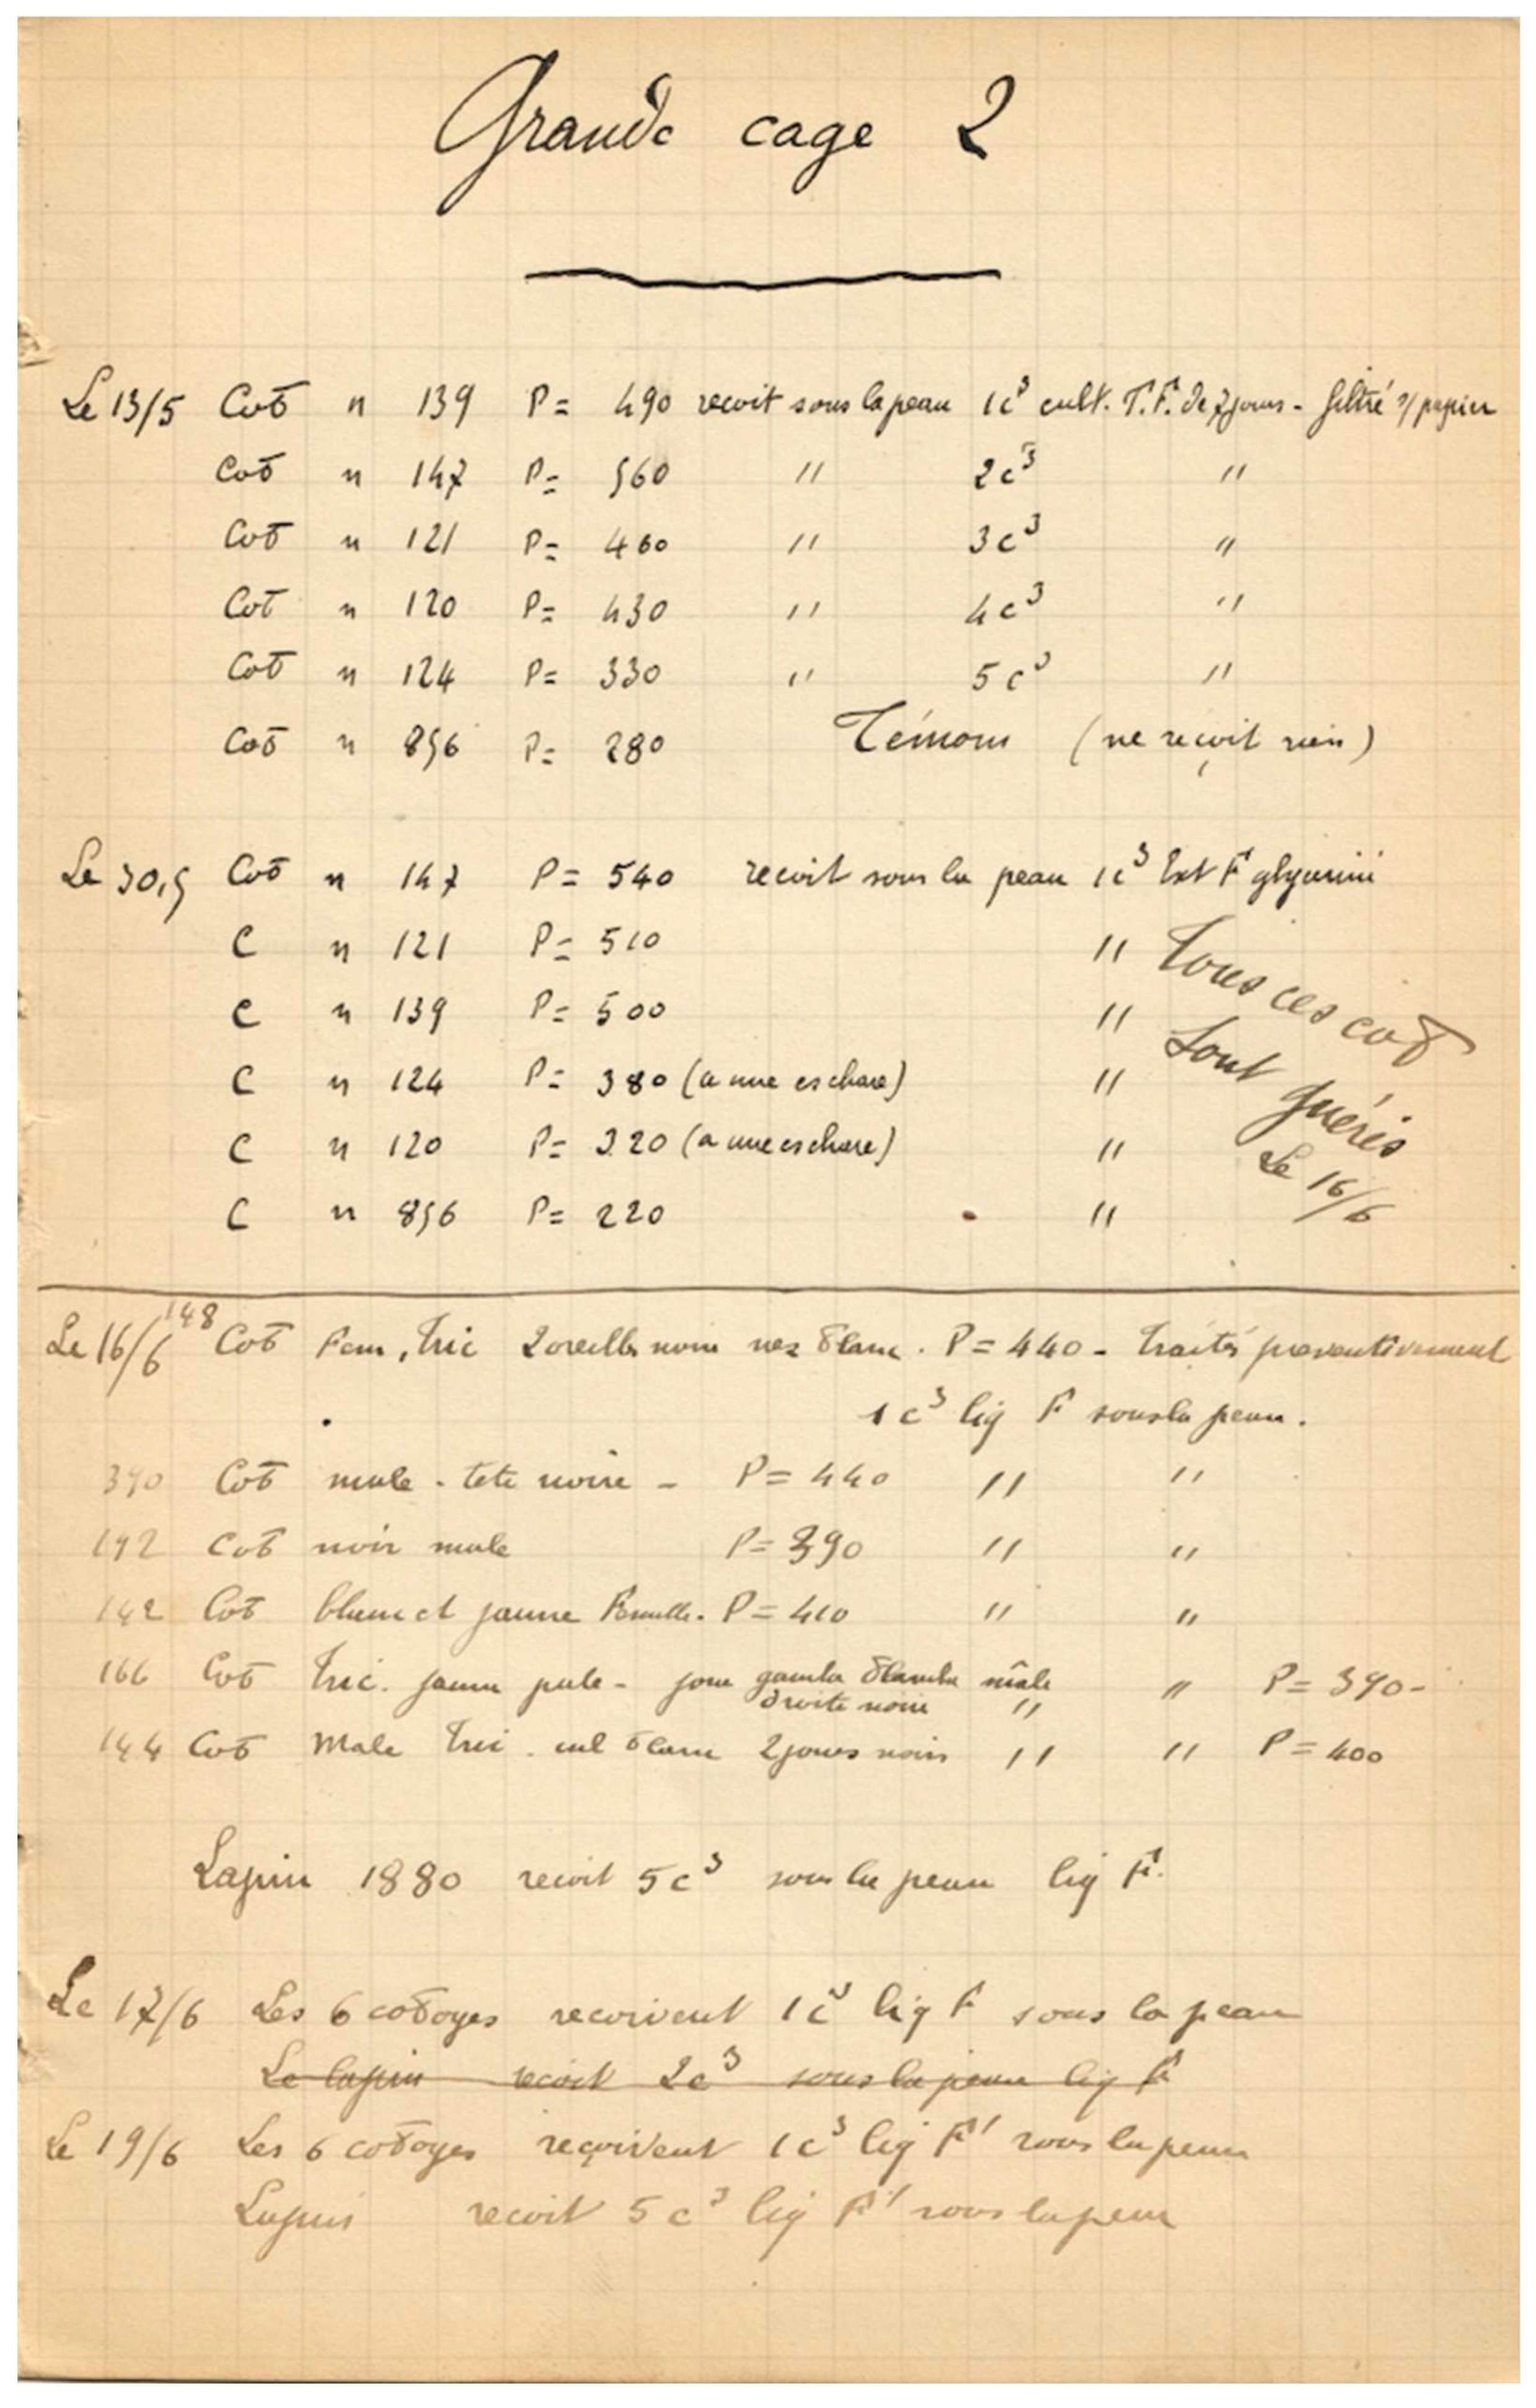 Grande cage 2
Le 13/5 Cob n 139 P = 490 recoit sous la peau 1c³ cult. T.F. de 7 jours - filtré s/papier
Cob n 147 P = 560 " 2c³ "
Cob n 121 P = 460 " 3c³ "
Cob n 120 P = 430 " 4c³ "
Cob n 124 P = 330 " 5c³ "
Cob n 856 P = 280 Témoin (ne reçoit rien)
Le 30,5 Cob n 147 P = 540 recoit sous la peau 1c³ Ext F glycériné
C n 121 P = 510 "
C n 139 P = 500 "
C n 124 P = 380 (a une eschare) "
C n 120 P = 320 (a une eschare) "
C n 856 P = 220 "
Tous ces cob
sont guéris
Le 16/6
Le 16/6 148 Cob Fem, Tric 2 oreilles noire nez blanc. P = 440 - Traités preventivement
1c³ liq F sous la peau.
390 Cob male - tete noire - P = 440 " "
192 Cob noir male P = 390 " "
142 Cob blanc et jaune Femelle. P = 410 " "
166 Cob Tric. jaune pale - joue gauche blanche mâle " P = 390 -
droite noire "
144 Cob Male Tric. cul blanc 2 joues noires " " P = 400
Lapin 1880 recoit 5c³ sous la peau liq F.
Le 17/6 Les 6 cobayes recoivent 1c³ liq F sous la peau
Le lapin recoit 2c³ sous la peau liq F
Le 19/6 Les 6 cobayes reçoivent 1c³ liq F' sous la peau
Lapin recoit 5c³ liq F' sous la peau